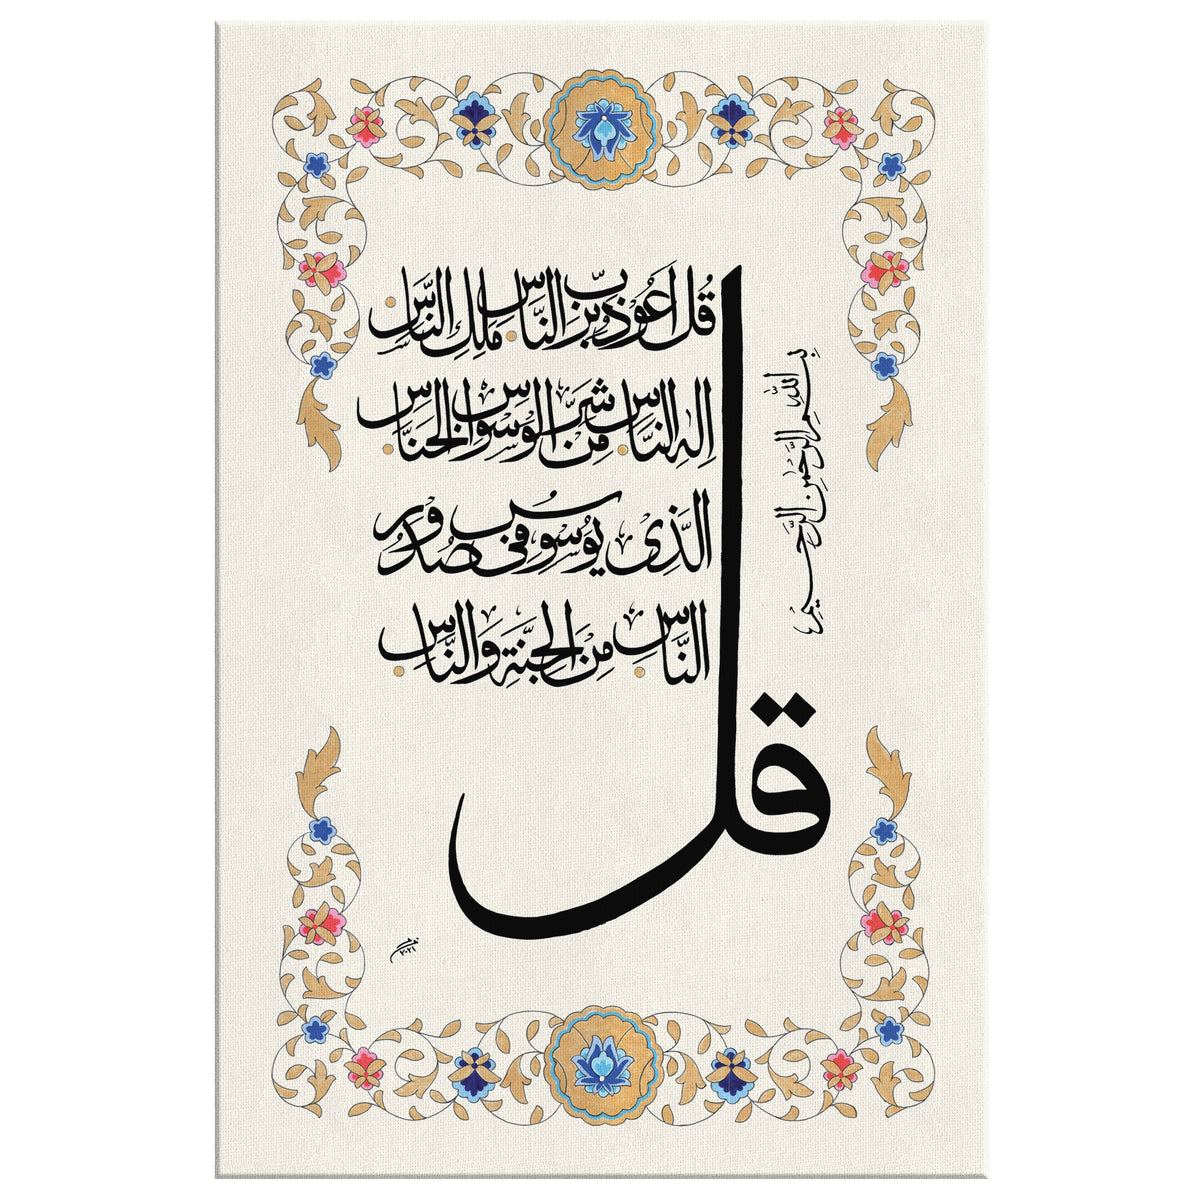 بِسْمِ اللَّهِ الرَّحْمٰنِ الرَّحِيمِ
قُلْ أَعُوذُ بِرَبِّ النَّاسِ مَلِكِ النَّاسِ
إِلٰهِ النَّاسِ مِنْ شَرِّ الْوَسْوَاسِ الْخَنَّاسِ
الَّذِي يُوَسْوِسُ فِي صُدُورِ
النَّاسِ مِنَ الْجِنَّةِ وَالنَّاسِ
قل
٢٠٢١